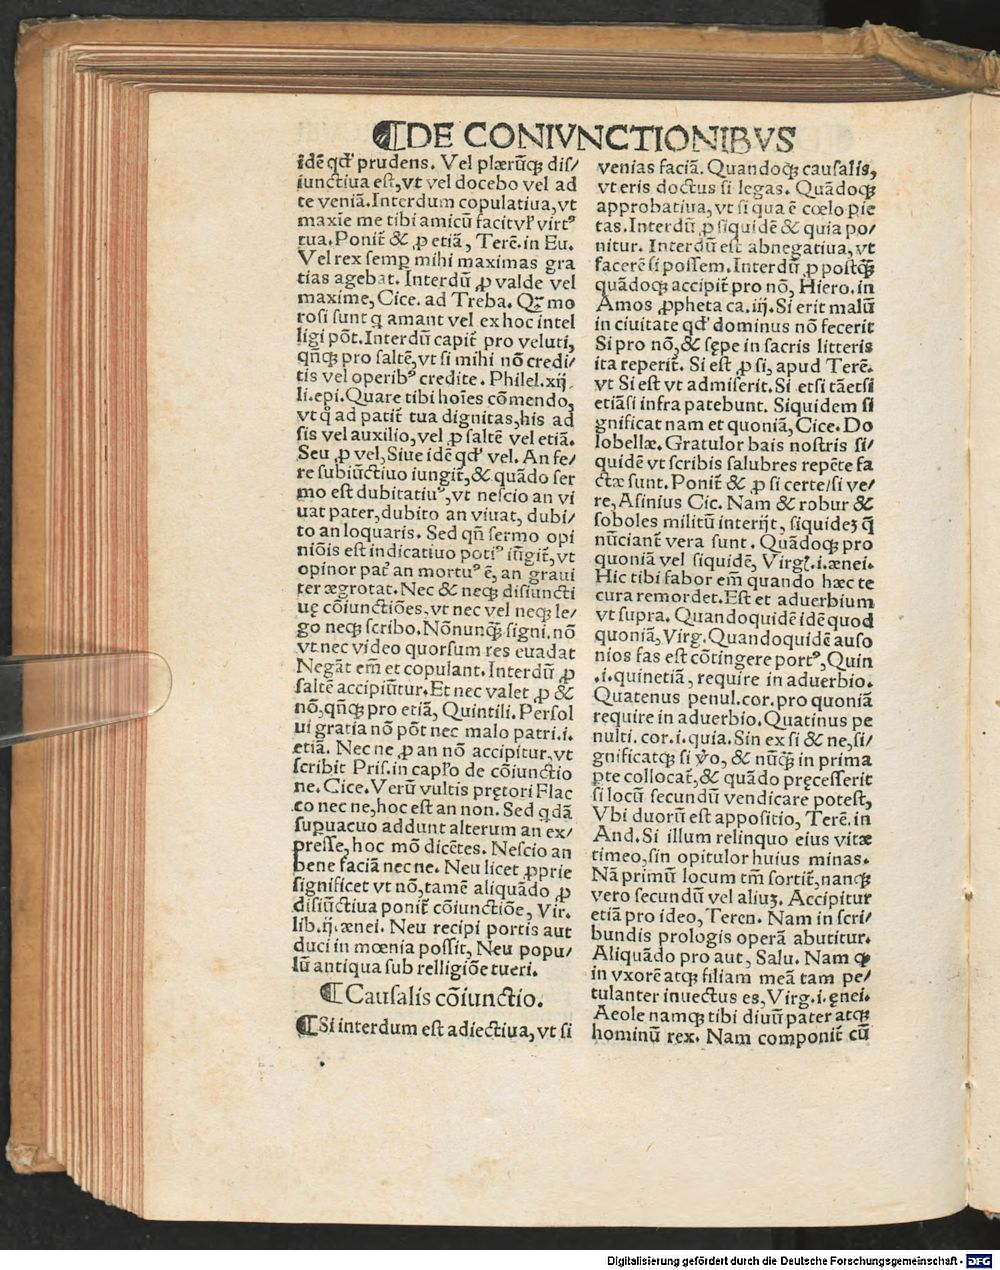 ¶DE CONIVNCTIONIBVS
idē qd' prudens. Vel plærūqȝ dis/
iunctiua est, vt vel docebo vel ad
te veniā. Interdum copulatiua, vt
maxie me tibi amicū facit vl' virtꝰ
tua. Ponit̄ & ꝓ etiā, Terē. in Eu.
Vel rex semꝑ mihi maximas gra
tias agebat. Interdū ꝓ valde vel
maxime, Cice. ad Treba. Qꝛ mo
rosi sunt q amant vel ex hoc intel
ligi pōt. Interdū capit̄ pro veluti,
qn̄qȝ pro saltē, vt si mihi nō credi/
tis vel operibꝰ credite. Philel. xij.
li. epi. Quare tibi hoīes cōmendo,
vt q̄ ad patit̄ tua dignitas, his ad
sis vel auxilio, vel ꝓ saltē vel etiā.
Seu ꝓ vel, Siue idē qd' vel. An fe/
re subiūctiuo iungit̄, & quādo ser
mo est dubitatiuꝰ, vt nescio an vi
uat pater, dubito an viuat, dubi/
to an loquaris. Sed qn̄ sermo opi
niōis est indicatiuo potiꝰ iūgit̄, vt
opinor pat̄ an mortuꝰ ē, an graui
ter ægrotat. Nec & neqȝ disiuncti
uę cōiunctiōes, vt nec vel neqȝ le/
go neqȝ scribo. Nōnunqȝ signi. nō
vt nec video quorsum res euadat
Negāt em̄ et copulant. Interdū ꝓ
saltē accipiūtur. Et nec valet ꝓ &
nō, qn̄qȝ pro etiā, Quintili. Persol
ui gratia nō pōt nec malo patri. i.
etiā. Nec ne ꝓ an nō accipitur, vt
scribit Pris. in capl'o de cōiunctio
ne. Cice. Verū vultis prętori Flac
co nec ne, hoc est an non. Sed qdā
suꝑuacuo addunt alterum an ex/
presse, hoc mō dicētes. Nescio an
bene faciā nec ne. Neu licet ꝓprie
significet vt nō, tamē aliquādo ꝓ
disiūctiua ponit̄ cōiunctiōe, Vir.
lib. ij. ænei. Neu recipi portis aut
duci in mœnia possit, Neu popu/
lū antiqua sub relligiōe tueri.
¶Causalis cōiunctio.
¶Si interdum est adiectiua, vt si
venias faciā. Quandoqȝ causalis,
vt eris doctus si legas. Quādoqȝ
approbatiua, vt si qua ē cœlo pie
tas. Interdū ꝓ siquidē & quia po/
nitur. Interdū est abnegatiua, vt
facerē si possem. Interdū ꝓ postqȝ
quādoqȝ accipit̄ pro nō, Hiero. in
Amos ꝓpheta ca. iij. Si erit malū
in ciuitate qd' dominus nō fecerit
Si pro nō, & sępe in sacris litteris
ita reperit̄. Si est ꝓ si, apud Terē.
vt Si est vt admiserit. Si etsi tāetsi
etiāsi infra patebunt. Siquidem si
gnificat nam et quoniā, Cice. Do
lobellæ. Gratulor bais nostris si/
quidē vt scribis salubres repēte fa
ctæ sunt. Ponit̄ & ꝓ si certe/si ve/
re, Asinius Cic. Nam & robur &
soboles militū interijt, siquideȝ q̄
nūciant̄ vera sunt. Quādoqȝ pro
quoniā vel siquidē, Virgl. i. ænei.
Hic tibi fabor em̄ quando hæc te
cura remordet. Est et aduerbium
vt supra. Quandoquidē idē quod
quoniā, Virg. Quandoquidē auso
nios fas est cōtingere portꝰ, Quin
.i. quinetiā, require in aduerbio.
Quatenus penul. cor. pro quoniā
require in aduerbio. Quatinus pe
nulti. cor. i. quia. Sin ex si & ne, si/
gnificatqȝ si v̊o, & nūqȝ in prima
ꝑte collocat̄, & quādo pręcesserit
si locū secundū vendicare potest,
Vbi duorū est appositio, Terē. in
And. Si illum relinquo eius vitæ
timeo, sin opitulor huius minas.
Nā primū locum tm̄ sortit̄, nanqȝ
vero secundū vel aliuȝ. Accipitur
etiā pro ideo, Teren. Nam in scri/
bundis prologis operā abutitur.
Aliquādo pro aut, Salu. Nam qȝ
in vxorē atqȝ filiam meā tam pe/
tulanter inuectus es, Virg. i. ęnei.
Aeole namqȝ tibi diuū pater atqȝ
hominū rex. Nam componit̄ cū
Digitalisierung gefördert durch die Deutsche Forschungsgemeinschaft - DFG